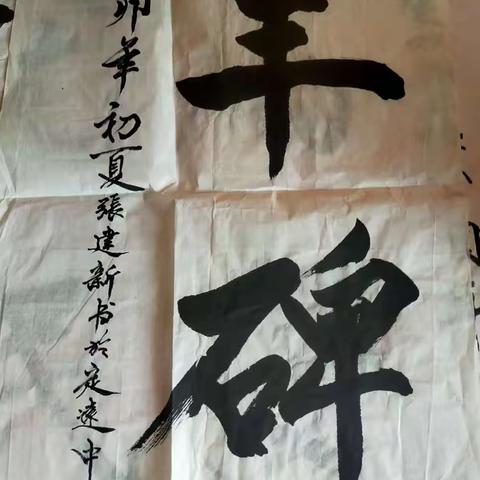 丰碑
卯年初夏張建新书於定遠中